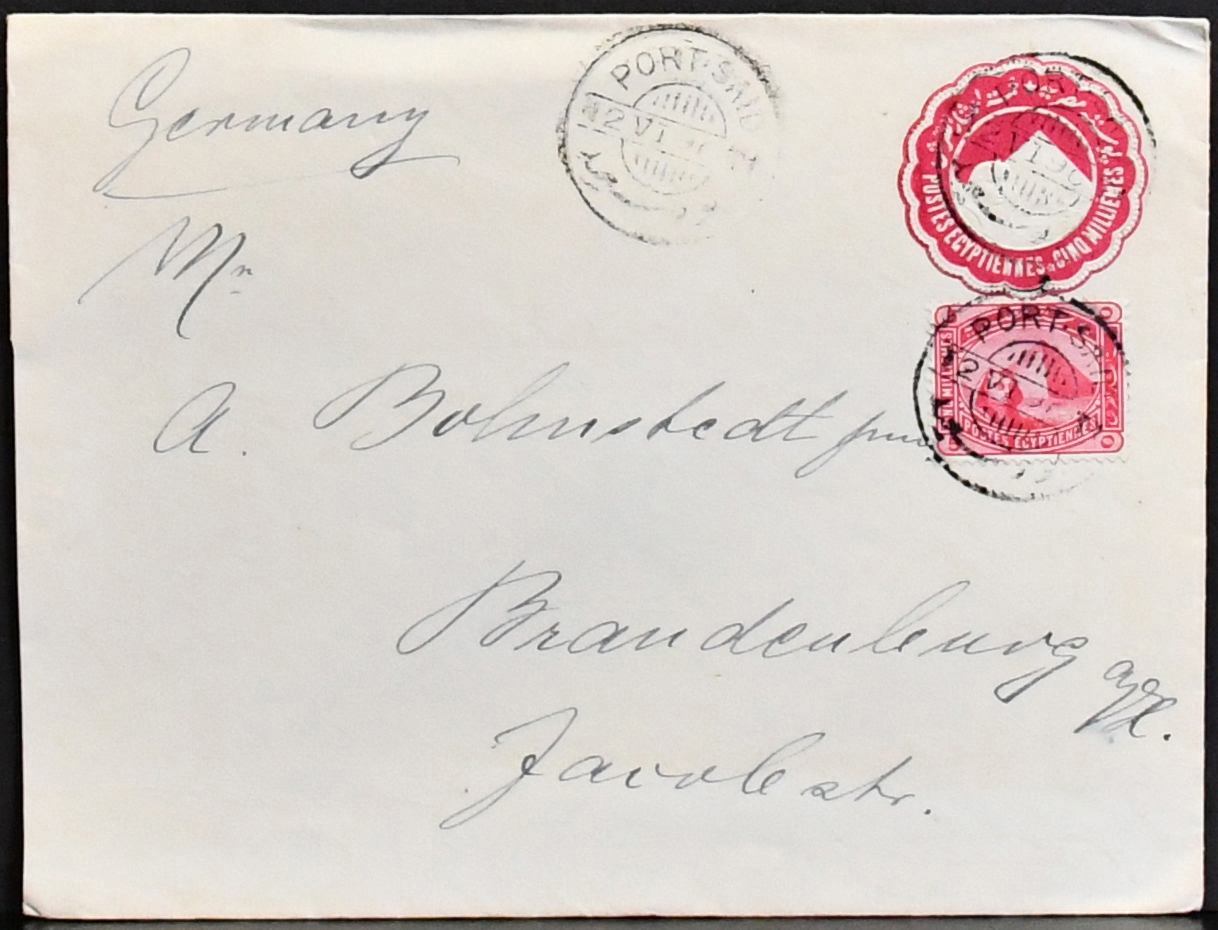 Germany
Mr
A. Bohnstedt jun
Brandenburg a/H.
Jacobstr.
PORT-SAID
12 VI 9
POSTES EGYPTIENNES CINQ MILLIEMES
PORT
VI 90
PORT-SAID
12 VI 9
CINQ MILLIEMES
POSTES EGYPTIENNES